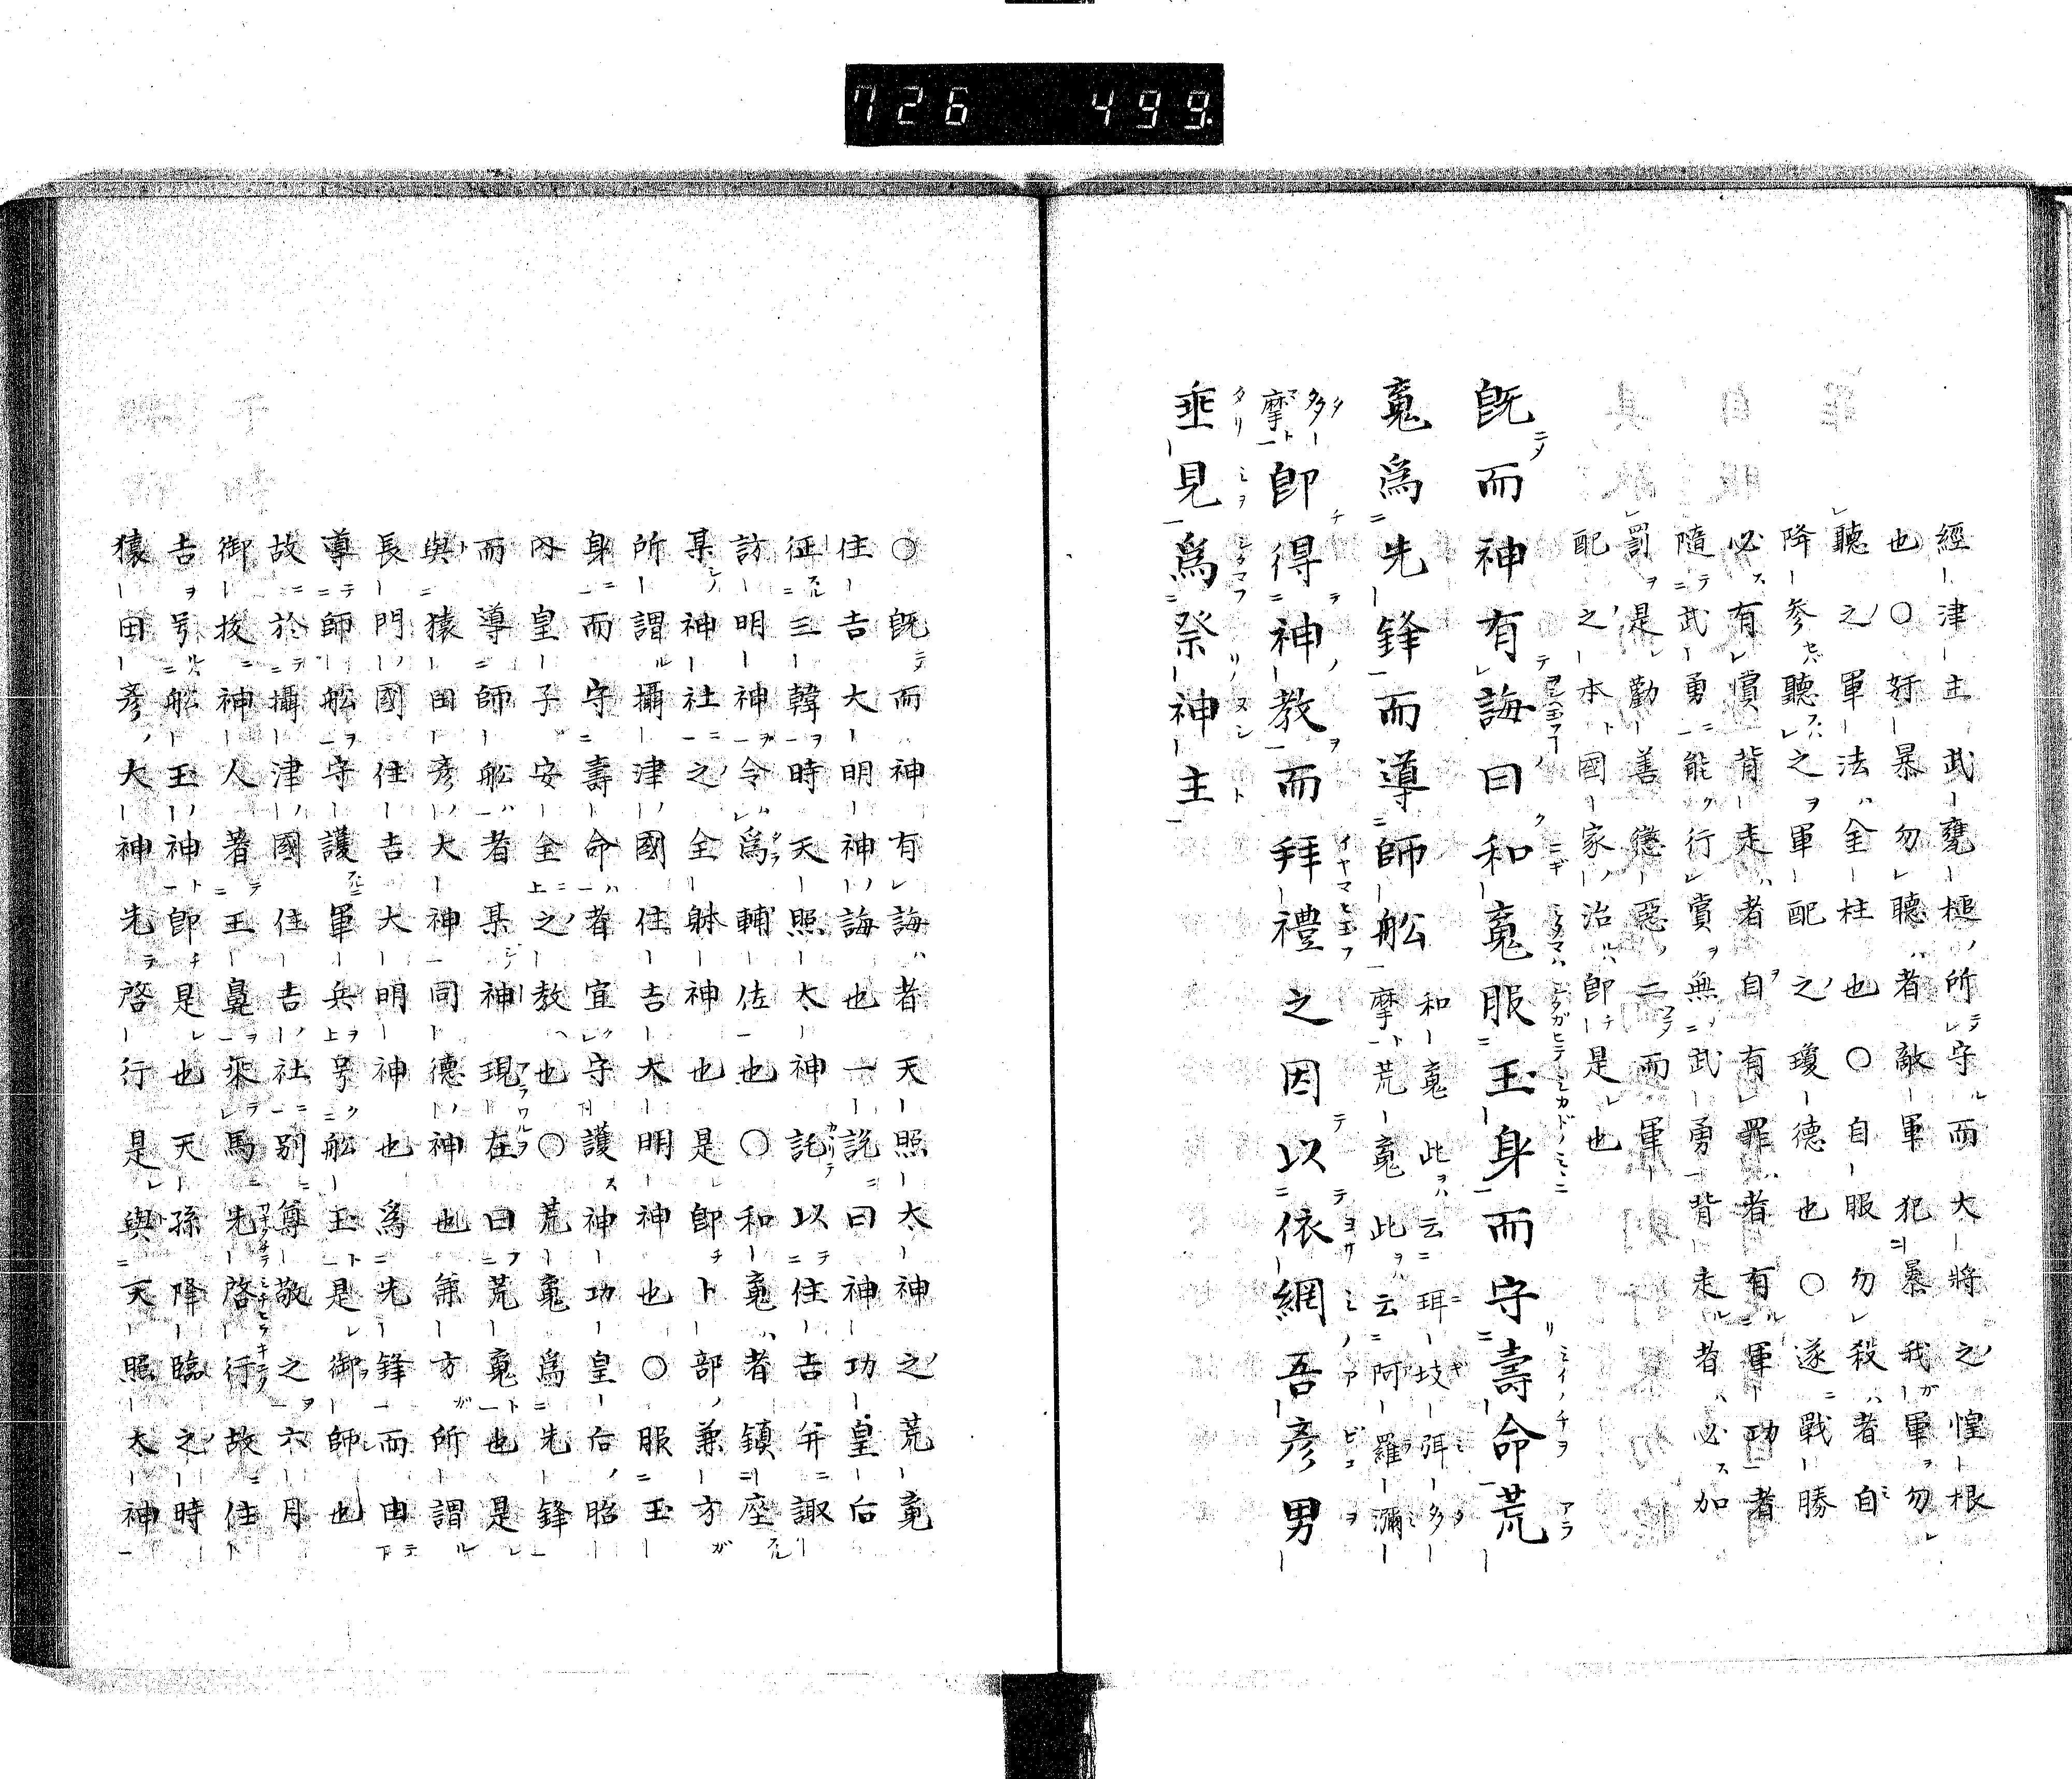 726 499
經津主武甕槌所守而大將之惶根
也○奸暴勿聽者敵軍犯暴我軍勿
聽之軍法全柱也○自服勿殺者自
降參聽之軍配之瓊德也○遂戰勝
必有賞背走者自有罪者有軍功者
隨武勇能行賞無武勇背走者必加
罰是勸善懲惡二而軍
配之本國家治即是也
既而神有誨曰和䰟服玉身而守壽命荒
䰟爲先鋒而導師舩和䰟此云珥岐弭多摩荒䰟此云阿羅瀰
多摩即得神教而拜禮之因以依網吾彥男
垂見爲祭神主
○既而神有誨者天照大神之荒䰟
住吉大明神誨也一説曰神功皇后
征三韓時天照太神託以住吉并諏
訪明神令爲輔佐也○和䰟者鎮座
某神社之全躰神也是即卜部兼方
所謂攝津國住吉大明神也○服玉
身而守壽命者宜守護神功皇后胎
内皇子安全之教也○荒䰟爲先鋒
而導師舩者某神現在曰荒䰟也是
與猿田彥大神同德神也兼方所謂
長門國住吉大明神也爲先鋒而由
導師舩守護軍兵号舩玉是御師也
故於攝津國住吉社別尊敬之六月
御拔神人著王鼻乘馬先啓行故住
吉号舩玉神即是也天孫降臨之時
猿田彥大神先啓行是與天照大神